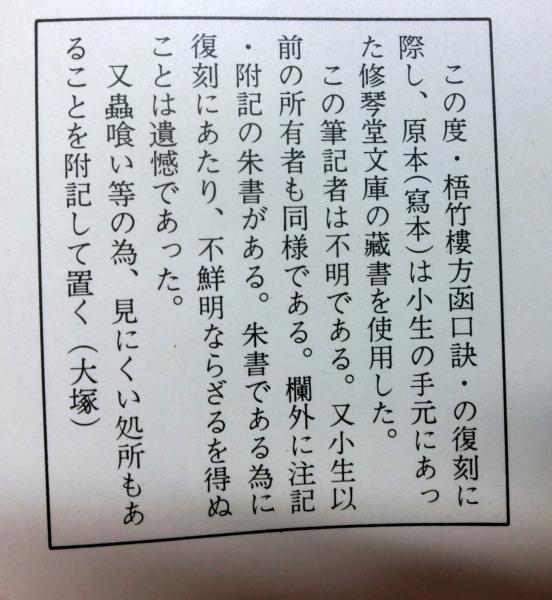 この度・梧竹樓方函口訣・の復刻に
際し、原本(寫本)は小生の手元にあっ
た修琴堂文庫の藏書を使用した。
この筆記者は不明である。又小生以
前の所有者も同様である。欄外に注記
・附記の朱書がある。朱書である為に
復刻にあたり、不鮮明ならざるを得ぬ
ことは遺憾であった。
又蟲喰い等の為、見にくい処所もあ
ることを附記して置く(大塚)